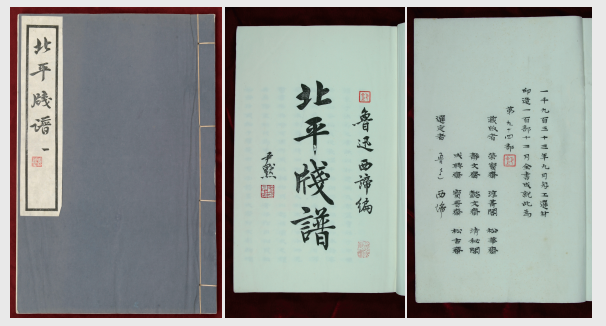 北平牋譜 一
魯迅 西諦編
北平牋譜
尹默
一千九百三十三年九月勼工選材
印造一百部十二月全書成就此為
第九十四部
者 榮寶齋 淳菁閣 松華齋
靜文齋 懿文齋 清祕閣
成興齋 寶晉齋 松古齋
選定者 魯迅 西諦